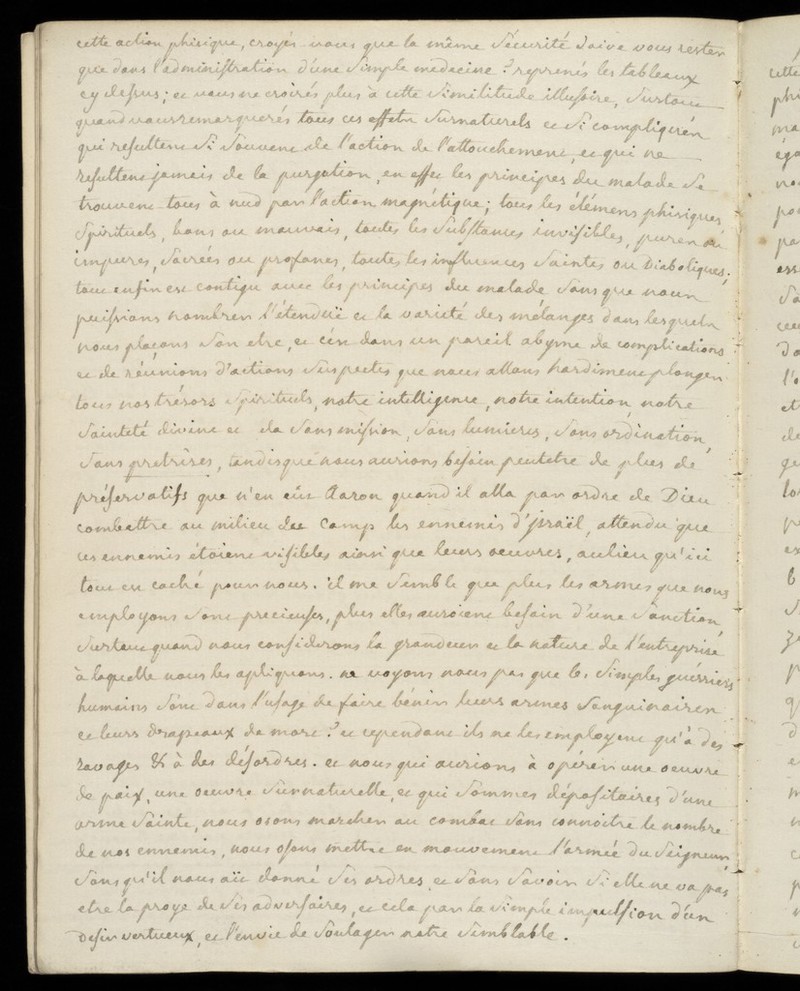 cette action phisique, croyés-vous que la même sécurité doive vous rester
que dans l'administration d'une simple medecine ? reprenés les tableaux
cy dessus ; et vous ne croirés plus à cette similitude illusoire, surtout
quand vous remarquerés tous ces effets surnaturels et si compliqués
qui resultent si souvent de l'action de l'attouchement, et qui ne
resultent jamais de la purgation, en effet les principes du malade se
trouvent tous à nud par l'action magnétique ; tous les élémens phisiques,
spirituels, bons ou mauvais, toutes les substances invisibles, pures ou
impures, sacrées ou profanes, toutes les influences saintes ou Diaboliques ;
tout enfin est contigu avec les principes du malade sans que nous
puissions nombrer l'étenduë et la varieté des mélanges dans lesquels
nous plaçons son etre, et c'est dans un pareil abyme de complications
et de réunions d'actions suspectes que nous allons hardiment plonger
tous nos trésors spirituels, notre intelligence, notre intention, notre
sainteté divine et la sans mission, sans lumieres, sans ordination,
sans pretrises, tandisque nous aurions besoin peutetre de plus de
préservatifs que n'en eût Aaron quand il alla par ordre de Dieu
combattre au milieu du camp les ennemis d'jsraël, attendu que
ces ennemis étoient visibles ainsi que leurs oeuvres, aulieu qu'ici
tout est caché pour nous. il me semble que plus les armes que nous
employons sont precieuses, plus elles auroient besoin d'une sanction,
surtout quand nous considerons la grandeur et la nature de l'entreprise
à laquelle nous les apliquons. ne voyons nous pas que les simples guérriers
humains sont dans l'usage de faire bénir leurs armes sanguinaires
et leurs drapeaux de mort ? et cependant ils ne les employent qu'à des
ravages & à des désordres. et nous qui aurions à opérer une oeuvre
de paix, une oeuvre surnaturelle, et qui sommes dépositaires d'une
arme sainte, nous osons marcher au combat sans connoitre le nombre
de nos ennemis, nous osons mettre en mouvement l'armée du Seigneur
sans qu'il nous aït donné ses ordres et sans savoir si elle ne va pas
etre la proye de ses adversaires, et cela par la simple impulsion d'un
desir vertueux, et l'envie de soulager notre semblable.